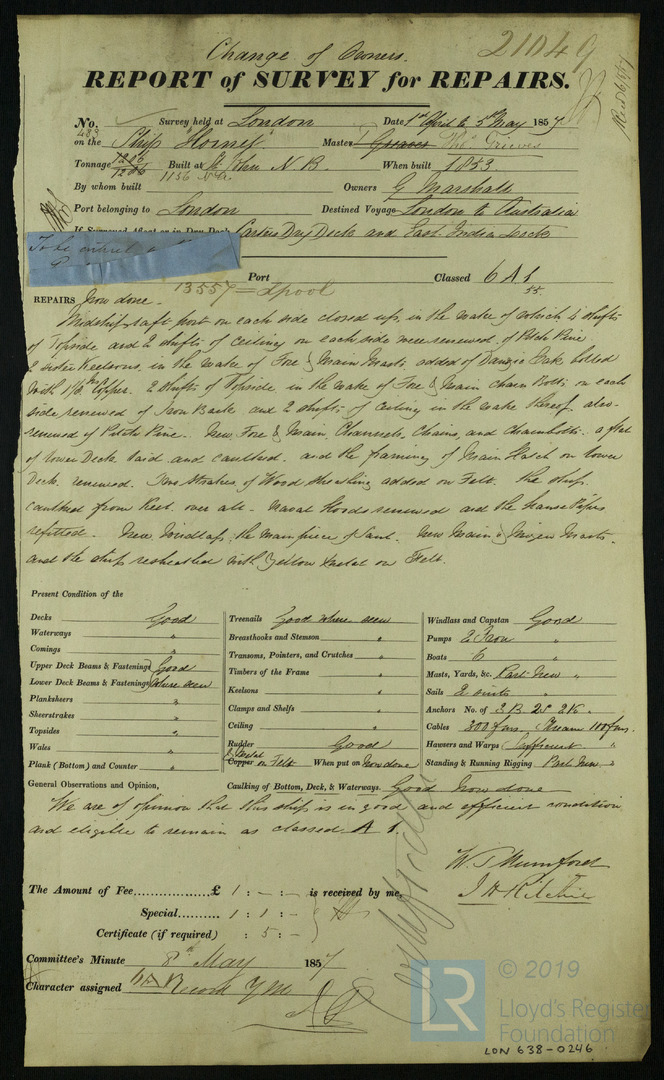 Change of Owners.
21049
REPORT of SURVEY for REPAIRS.
No. 483 Survey held at London Date 1st April to 5th May 1857
on the Ship "Hornet" Master Thos. Grieves
Tonnage 1286 Built at St John N B. When built 1853
1156 N.A.
By whom built Owners G Marshall
Port belonging to London Destined Voyage London to Australia
If Surveyed Afloat or in Dry Dock Carters Dry Dock and East India Docks
To be
Port Classed 6 A 1
55.
13557 = Lpool
REPAIRS Now done.
Midship & aft port on each side closed up, in the wake of which 4 shifts
of Topside and 2 shifts of Ceiling on each side were renewed of Pitch Pine
2 sister Keelsons, in the wake of Fore & Main Masts added of Danzic Oak, bolted
with 1 1/8 in Copper. 2 shifts of Topside in the wake of Fore & Main chain Bolts on each
side renewed of Iron Bark and 2 shifts of Ceiling in the wake thereof also
renewed of Pitch Pine. New Fore & Main Channels, Chains, and Chainbolts. a flat
of lower Deck laid and caulked. and the framing of Main Hatch on lower
Deck renewed. Two Strakes of Wood Sheathing added on Felt. the ship
caulked from Keel over all. Naval Hoods renewed and the hause Pipes
refitted. New Windlass, the main piece of Saul. New Main & Mizen Masts.
and the ship resheathed with Yellow Metal on Felt.
Present Condition of the
Decks Good
Waterways "
Comings "
Upper Deck Beams & Fastenings Good
Lower Deck Beams & Fastenings where seen
Planksheers "
Sheerstrakes "
Topsides "
Wales "
Plank (Bottom) and Counter "
Treenails Good where seen
Breasthooks and Stemson "
Transoms, Pointers, and Crutches "
Timbers of the Frame "
Keelsons "
Clamps and Shelfs "
Ceiling "
Rudder Good
Y Metal
Copper on Felt When put on Now done
Caulking of Bottom, Deck, & Waterways. Good Now done
Windlass and Capstan Good
Pumps 2 Iron "
Boats 6 "
Masts, Yards, &c. Part New "
Sails 2 suits "
Anchors No. of 3 B. 2S 2K.
Cables 300 fms. Stream 100 fms.
Hawsers and Warps Sufficient "
Standing & Running Rigging Part New. "
General Observations and Opinion,
We are of opinion that this ship is in good and efficient condition
and eligible to remain as classed A 1.
W. J Mumford
J H Ritchie
The Amount of Fee £ 1 : - : - is received by me,
Special 1 : 1 : -
Certificate (if required) : 5 : -
Certificate
Committee's Minute 8th May 1857
Character assigned 6 A 1 Record YM
LR
© 2019
Lloyd's Register
Foundation
LON 638-0246